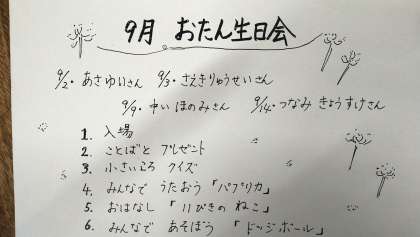 9月 おたん生日会
9/2・あさゆいさん 9/3・さえきりゅうせいさん
9/9・中い ほのみさん 9/14・つなみ きょうすけさん
1. 入場
2. ことばと プレゼント
3. 小さいころ クイズ
4. みんなで うたおう「パプリカ」
5. おはなし「11ぴきの ねこ」
6. みんなで あそぼう「ドッジボール」